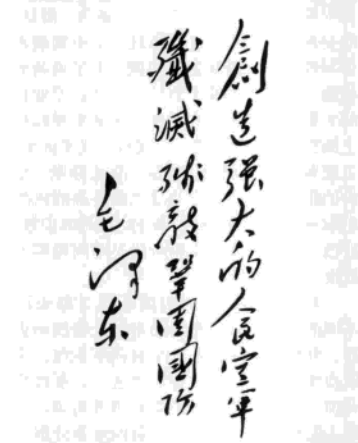 創造强大的人民空軍
殲滅殘敵鞏固國防
毛泽东